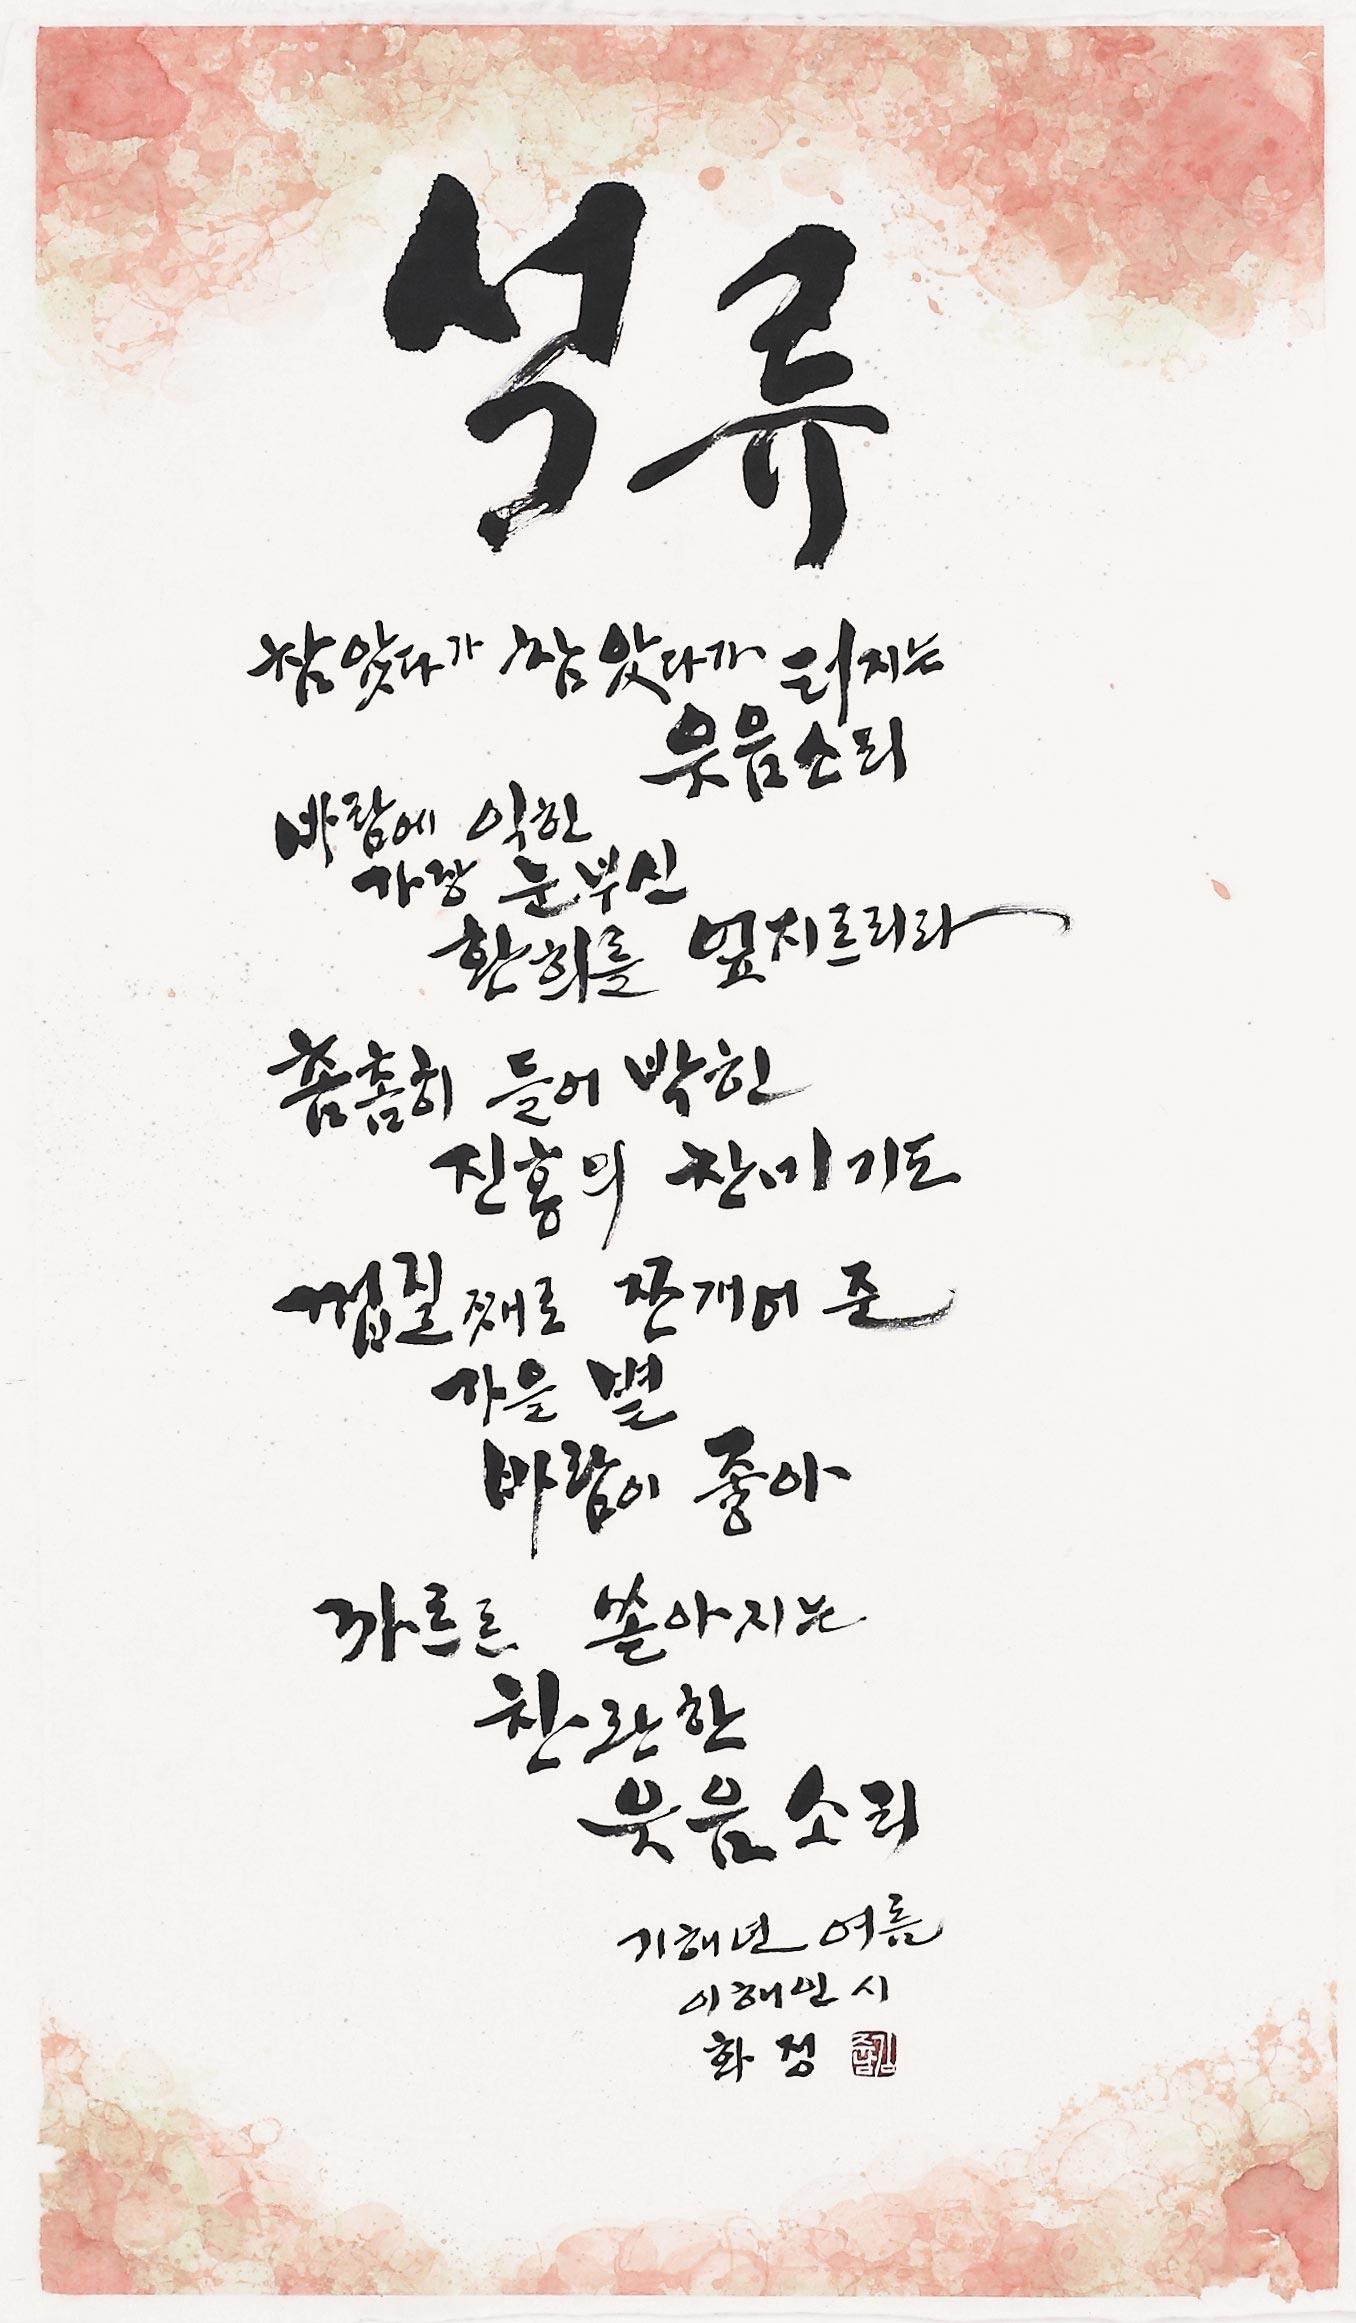 석류
참았다가 참았다가 터지는
웃음소리
바람에 익힌
가장 눈부신
환희를 엎지르리라
촘촘히 들어 박힌
진홍의 찬미 기도
껍질째로 쪼개어 준
가을 볕
바람이 좋아
까르르 쏟아지는
찬란한
웃음소리
기해년 여름
이해인 시
화정